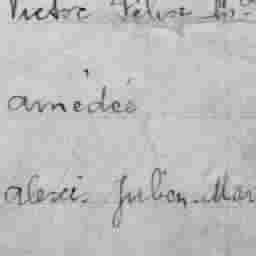 Victor Félix M.
amédée
alexis Julien-Mar